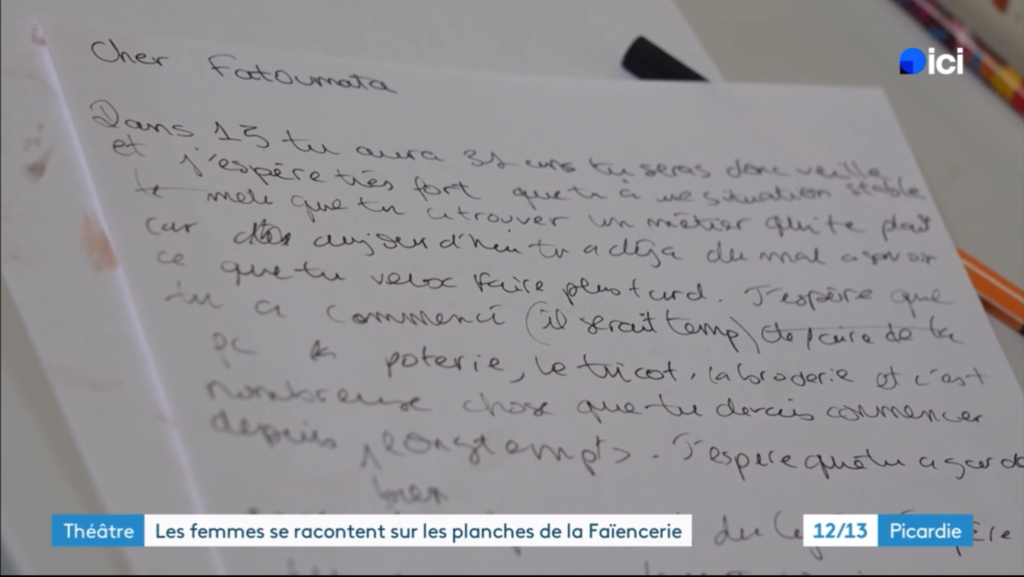 ici
Cher Fatoumata
Dans 15 tu aura 31 ans tu seras donc veille
et j'espère très fort que tu à une situation stable
te mele que tu a trouver un métier qui te plait
car aujourd'hui tu a déja du mal a savoir
ce que tu veux faire plus tard. J'espère que
tu a commencé (il serait temp) de faire de la
poterie, le tricot, la broderie et c'est
nombreuse chose que tu devais commencer
depuis longtemps. J'espère que tu a
bien
Théâtre Les femmes se racontent sur les planches de la Faïencerie 12/13 Picardie